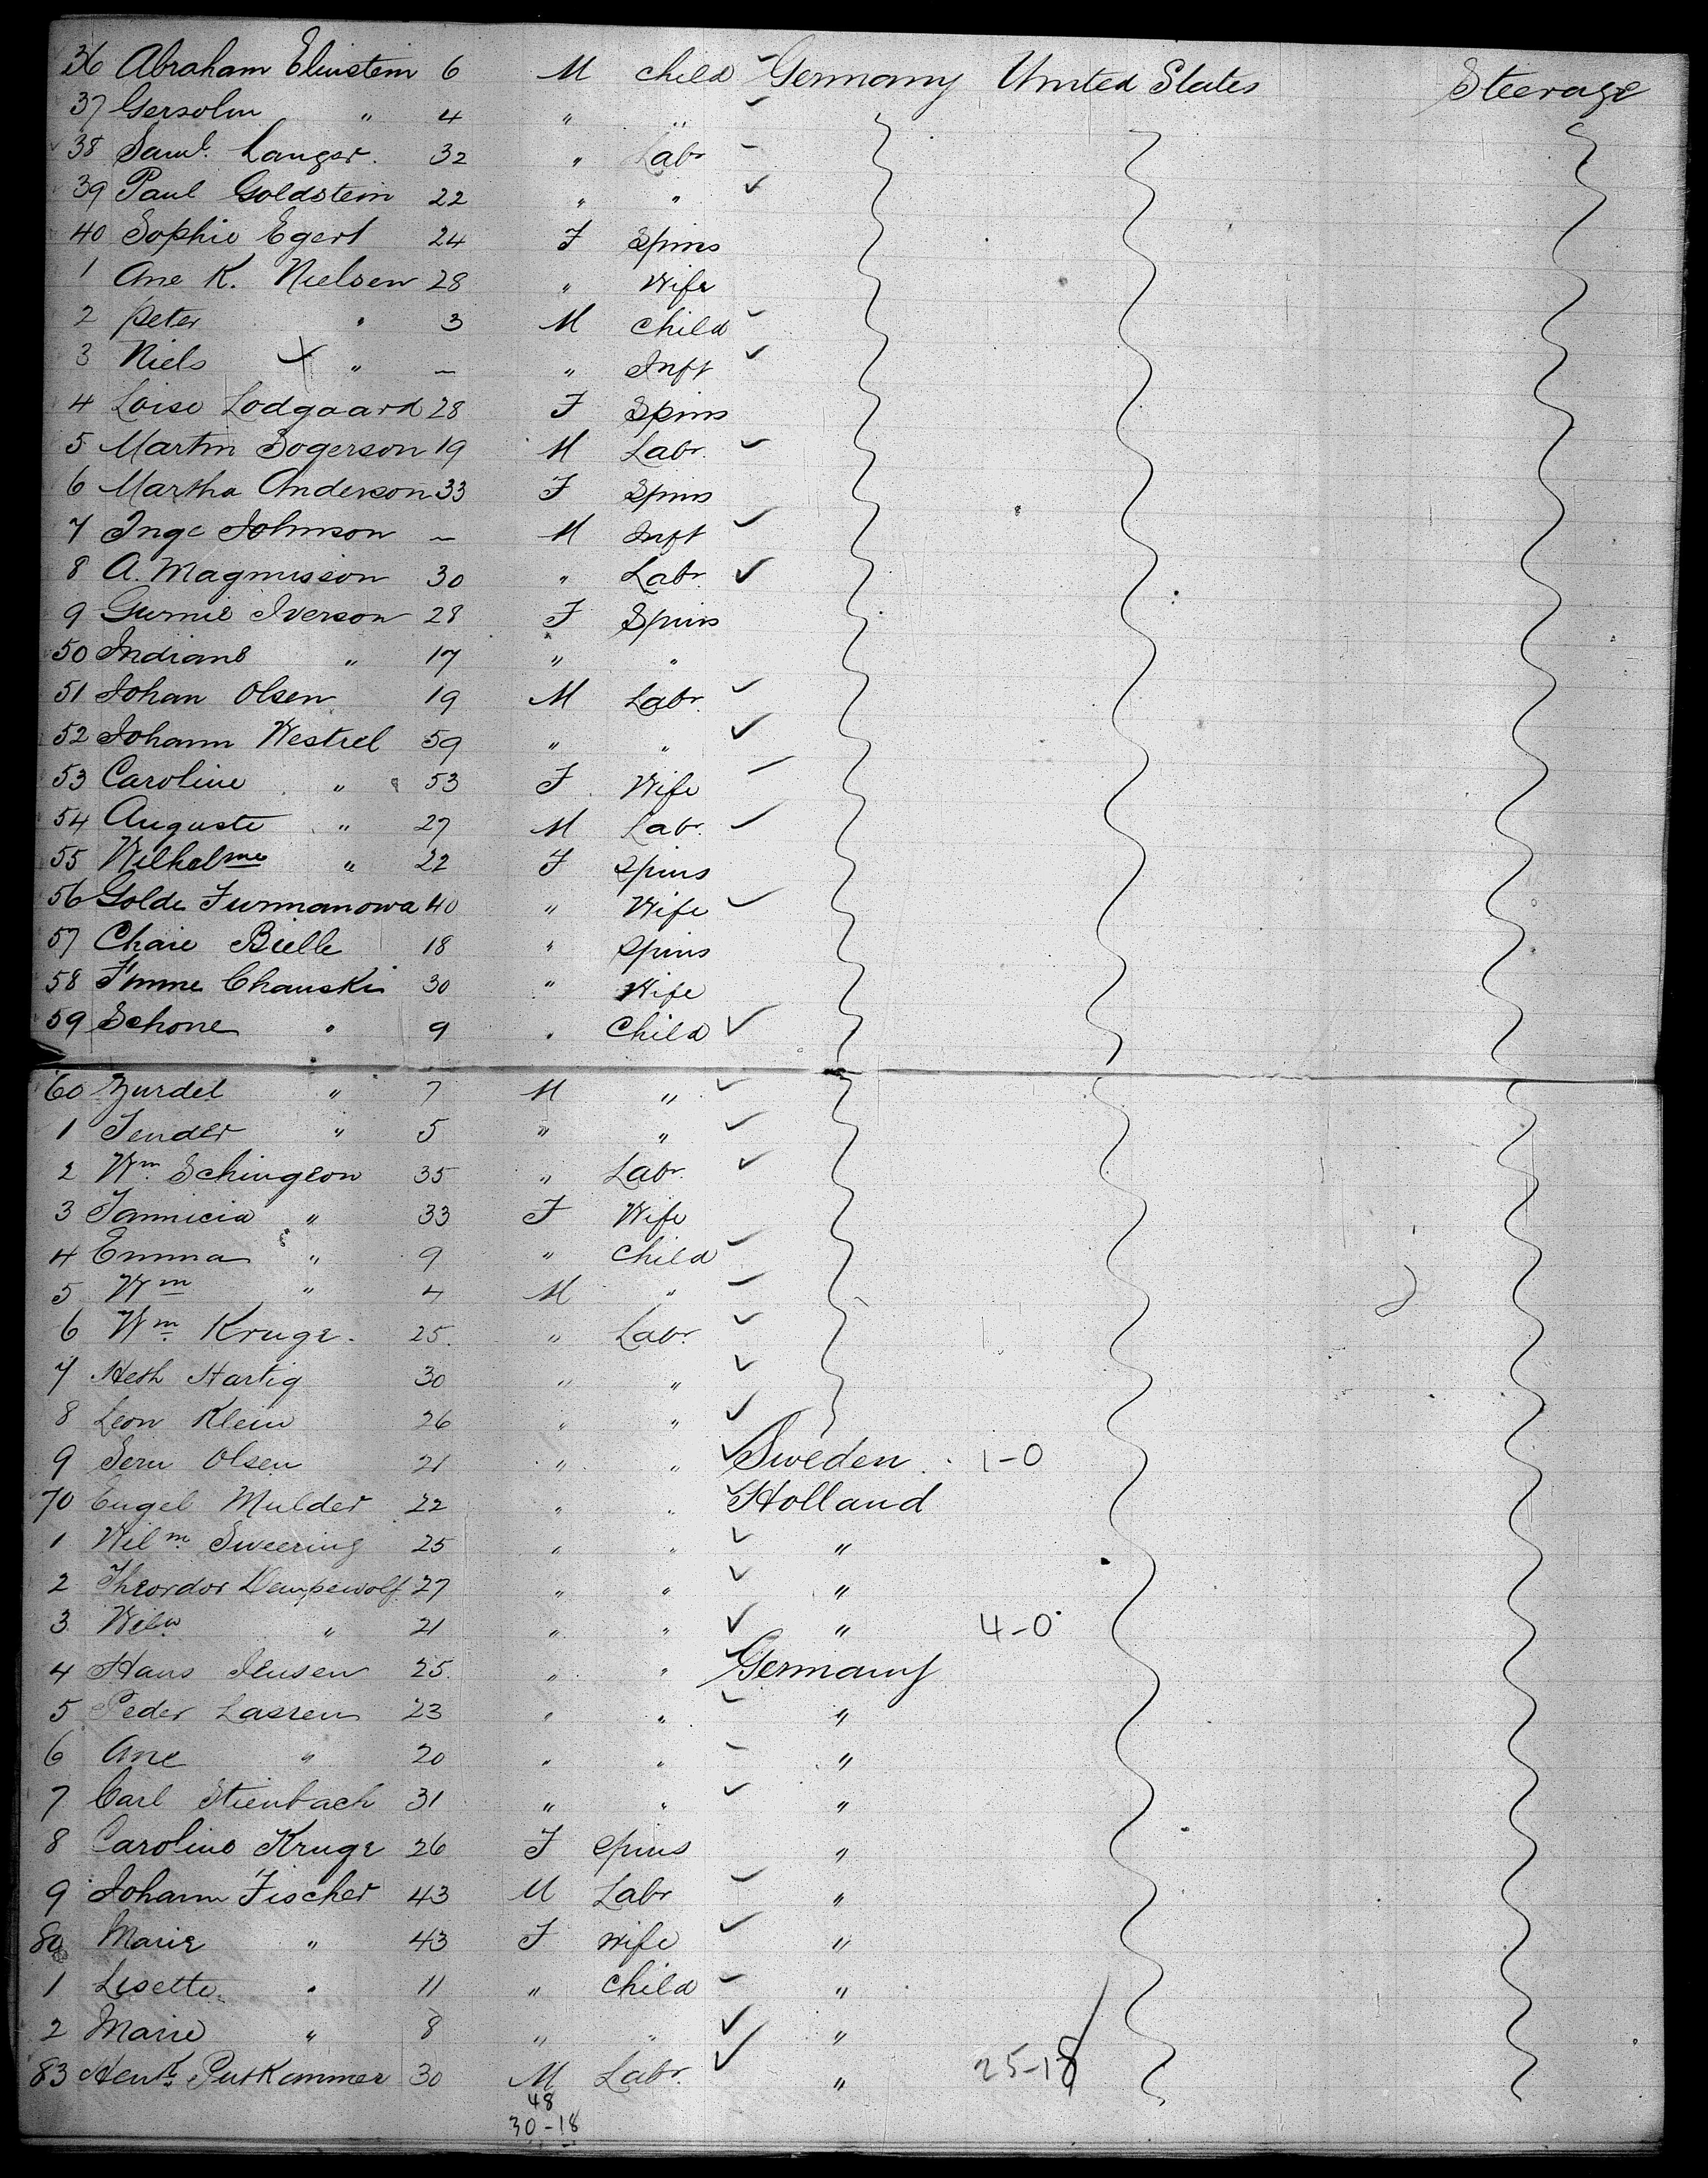 36 Abraham Elinstein 6 M child Germany United States Steerage
37 Gersolm " 4 " "
38 Saml. Langer. 32 " Labr
39 Paul Goldstein 22 " "
40 Sophie Egert 24 F Spins
1 Ane K. Nielsen 28 " Wife
2 Peter " 3 M child
3 Niels " — " Inft
4 Loise Lodgaard 28 F Spins
5 Martin Sogerson 19 M Labr.
6 Martha Anderson 33 F Spins
7 Inge Johnson — M Inft
8 A. Magnusson 30 " Labr
9 Gurnie Iverson 28 F Spins
50 Indiane " 17 " "
51 Johan Olsen 19 M Labr.
52 Johann Westrel 59 " "
53 Caroline " 53 F Wife
54 Auguste " 27 M Labr.
55 Wilhelme " 22 F spins
56 Golde Furmanowa 40 " Wife
57 Chaie Bielle 18 " spins
58 Chauski 30 " Wife
59 Schone " 9 " Child
60 Zurdel " 7 M "
1 Sender " 5 " "
2 Wm. Schingeon 35 " Labr.
3 " 33 F Wife
4 Emma " 9 " child
5 Wm " 4 M "
6 Wm. Kruge. 25. " Labr.
7 Heth Hartig 30 " "
8 Leon Klein 26 " "
9 Sern Olsen 21 " " Sweden 1-0
70 Engel Mulder 22 " " Holland
1 Wilm. Sweering 25 " " "
2 Theordor Dempewolf 27 " " "
3 Wilm " 21 " " " 4-0
4 Hans Jensen 25. " " Germany
5 Peder Lassen 23 " " "
6 Ane " 20 " " "
7 Carl Stienbach 31 " " "
8 Caroline Kruge 26 F spins "
9 Johann Fischer 43 M Labr "
80 Marie " 43 F wife "
1 Lisette " 11 " child "
2 Marie " 8 " " "
83 Henk. Putkammer 30 M Labr. " 25-18
48
30-18